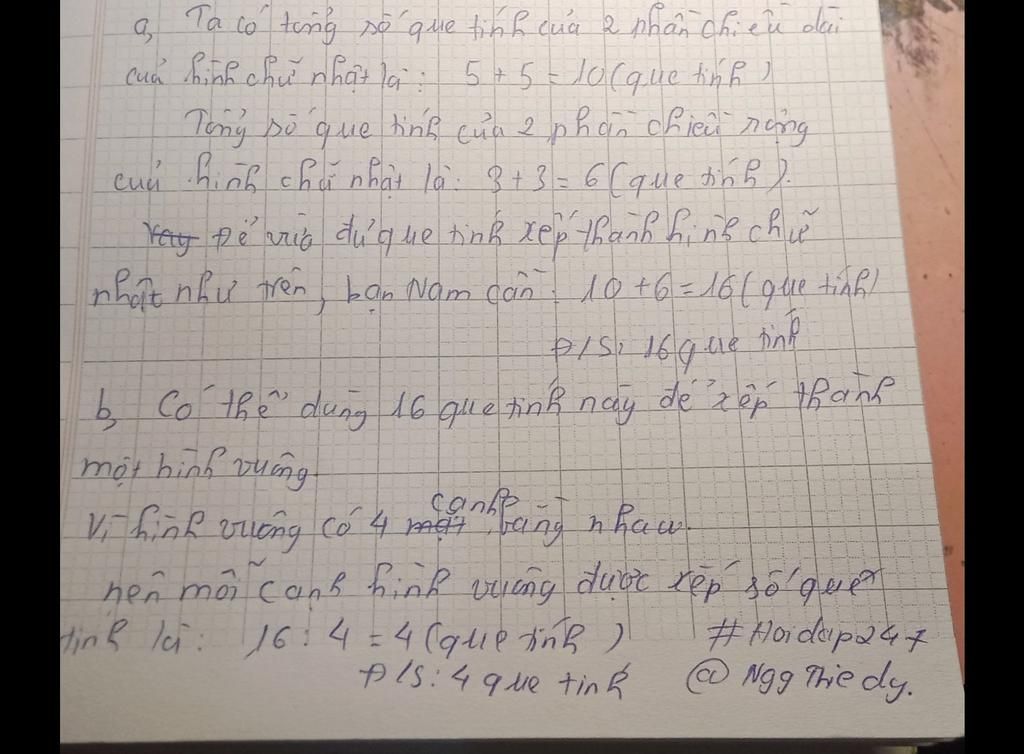 a, Ta có tổng số que tính của 2 phần chiều dài
của hình chữ nhật là: 5 + 5 = 10 (que tính)
Tổng số que tính của 2 phần chiều rộng
của hình chữ nhật là: 3 + 3 = 6 (que tính).
Để vừa đủ que tính xếp thành hình chữ
nhật như trên, bạn Nam cần: 10 + 6 = 16 (que tính)
Đ/S: 16 que tính
b, Có thể dùng 16 que tính này để xếp thành
một hình vuông
Vì hình vuông có 4 cạnh bằng nhau.
nên mỗi cạnh hình vuông được xếp số que
tính là: 16 : 4 = 4 (que tính) #Hoidap247
Đ/S: 4 que tính @Ngg Thie dy.